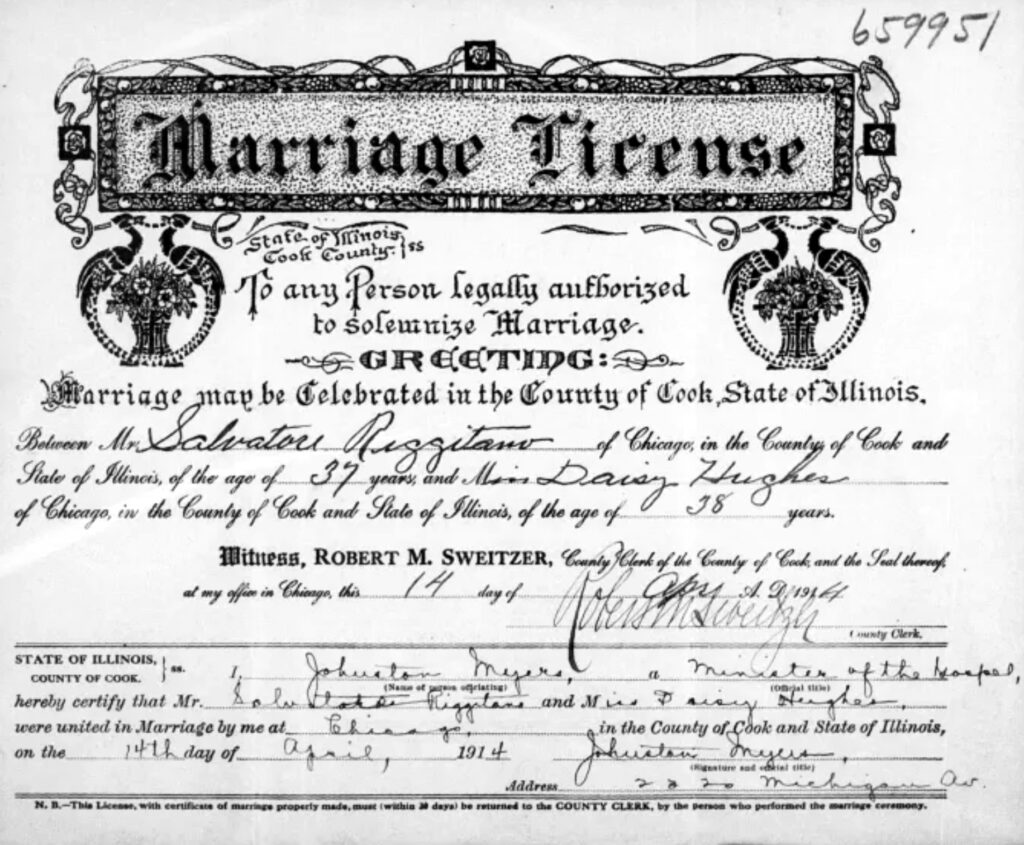 659951
Marriage License
State of Illinois,
Cook County. } ss
To any Person legally authorized
to solemnize Marriage.
GREETING:
Marriage may be Celebrated in the County of Cook, State of Illinois.
Between Mr. Salvatore Riggitano of Chicago, in the County of Cook and
State of Illinois, of the age of 37 years, and Miss Daisy Hughes
of Chicago, in the County of Cook and State of Illinois, of the age of 38 years.
Witness, ROBERT M. SWEITZER, County Clerk of the County of Cook, and the Seal thereof,
at my office in Chicago, this 14 day of Apr A. D. 1914
Robert M Sweitzer
County Clerk.
STATE OF ILLINOIS,
COUNTY OF COOK. } ss.
I, Johnston Myers, a Minister of the Gospel,
(Name of person officiating) (Official title)
hereby certify that Mr. Salvatore Riggitano and Miss Daisy Hughes,
were united in Marriage by me at Chicago, in the County of Cook and State of Illinois,
on the 14th day of April, 1914 Johnston Myers
(Signature and official title)
Address 2320 Michigan Av.
N. B.—This License, with certificate of marriage properly made, must (within 30 days) be returned to the COUNTY CLERK, by the person who performed the marriage ceremony.